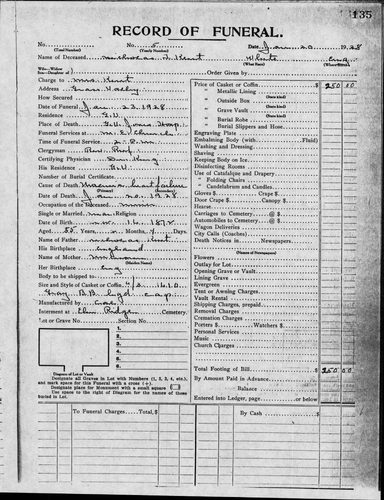 135
RECORD OF FUNERAL.
No. 5 Date Jan. 20 1928
(Total Number) (Yearly Number)
Name of Deceased Nicholas J. Hunt White Eng
(What Race) (Where Born)
Wife—Widow
Son—Daughter of Order Given by
Charge to Mrs Hunt
Address Grass Valley
How Secured
Date of Funeral Jan 23, 1928
Residence G.V.
Place of Death
Funeral Services at M. E. Church
Time of Funeral Service 2 P.M.
Clergyman Rev
Certifying Physician Dr. King
His Residence G.V.
Number of Burial Certificate
Cause of Death heart failure
Date of Death Jan 20 1928
Occupation of the Deceased miner
Single or Married mar Religion
Date of Birth 14 1872
Aged 55 Years Months Days
Name of Father Nicholas Hunt
His Birthplace England
Name of Mother
(Maiden Name)
Her Birthplace Eng
Body to be shipped to
Size and Style of Casket or Coffin
Manufactured by
Interment at Elm Ridge Cemetery.
Lot or Grave No. Section No.
1.
2.
3.
4.
5.
6.
Diagram of Lot or Vault
Designate all Graves in Lot with Numbers (1, 2, 3, 4, etc.),
and mark space for this Funeral with a cross (+).
Designate place for Monument with a small square
Use space to the right of Diagram for the names of those
buried in Lot.
Price of Casket or Coffin 250 00
" Metallic Lining
" Outside Box
(State kind)
" Grave Vault
(State kind)
" Burial Robe
(State kind)
" Burial Slippers and Hose
Engraving Plate
Embalming Body (with Fluid)
Washing and Dressing
Shaving
Keeping Body on Ice
Disinfecting Rooms
Use of Catafalque and Drapery
" Folding Chairs
" Candelabrum and Candles
Gloves $ Crape $
Door Crape $ Canopy $
Hearse
Carriages to Cemetery @ $
Automobiles to Cemetery @ $
Wagon Deliveries
City Calls (Coaches)
Death Notices in Newspapers.
(Names of Newspapers)
Flowers
Outlay for Lot
Opening Grave or Vault
Lining Grave
Evergreen
Tent or Awning Charges
Vault Rental
Shipping Charges, prepaid
Removal Charges
Cremation Charges
Porters $ Watchers $
Personal Services
Music
Church Charges
Total Footing of Bill 250 00
By Amount Paid in Advance
Balance
Entered into Ledger, page or below.
To Funeral Charges Total $
By Cash $